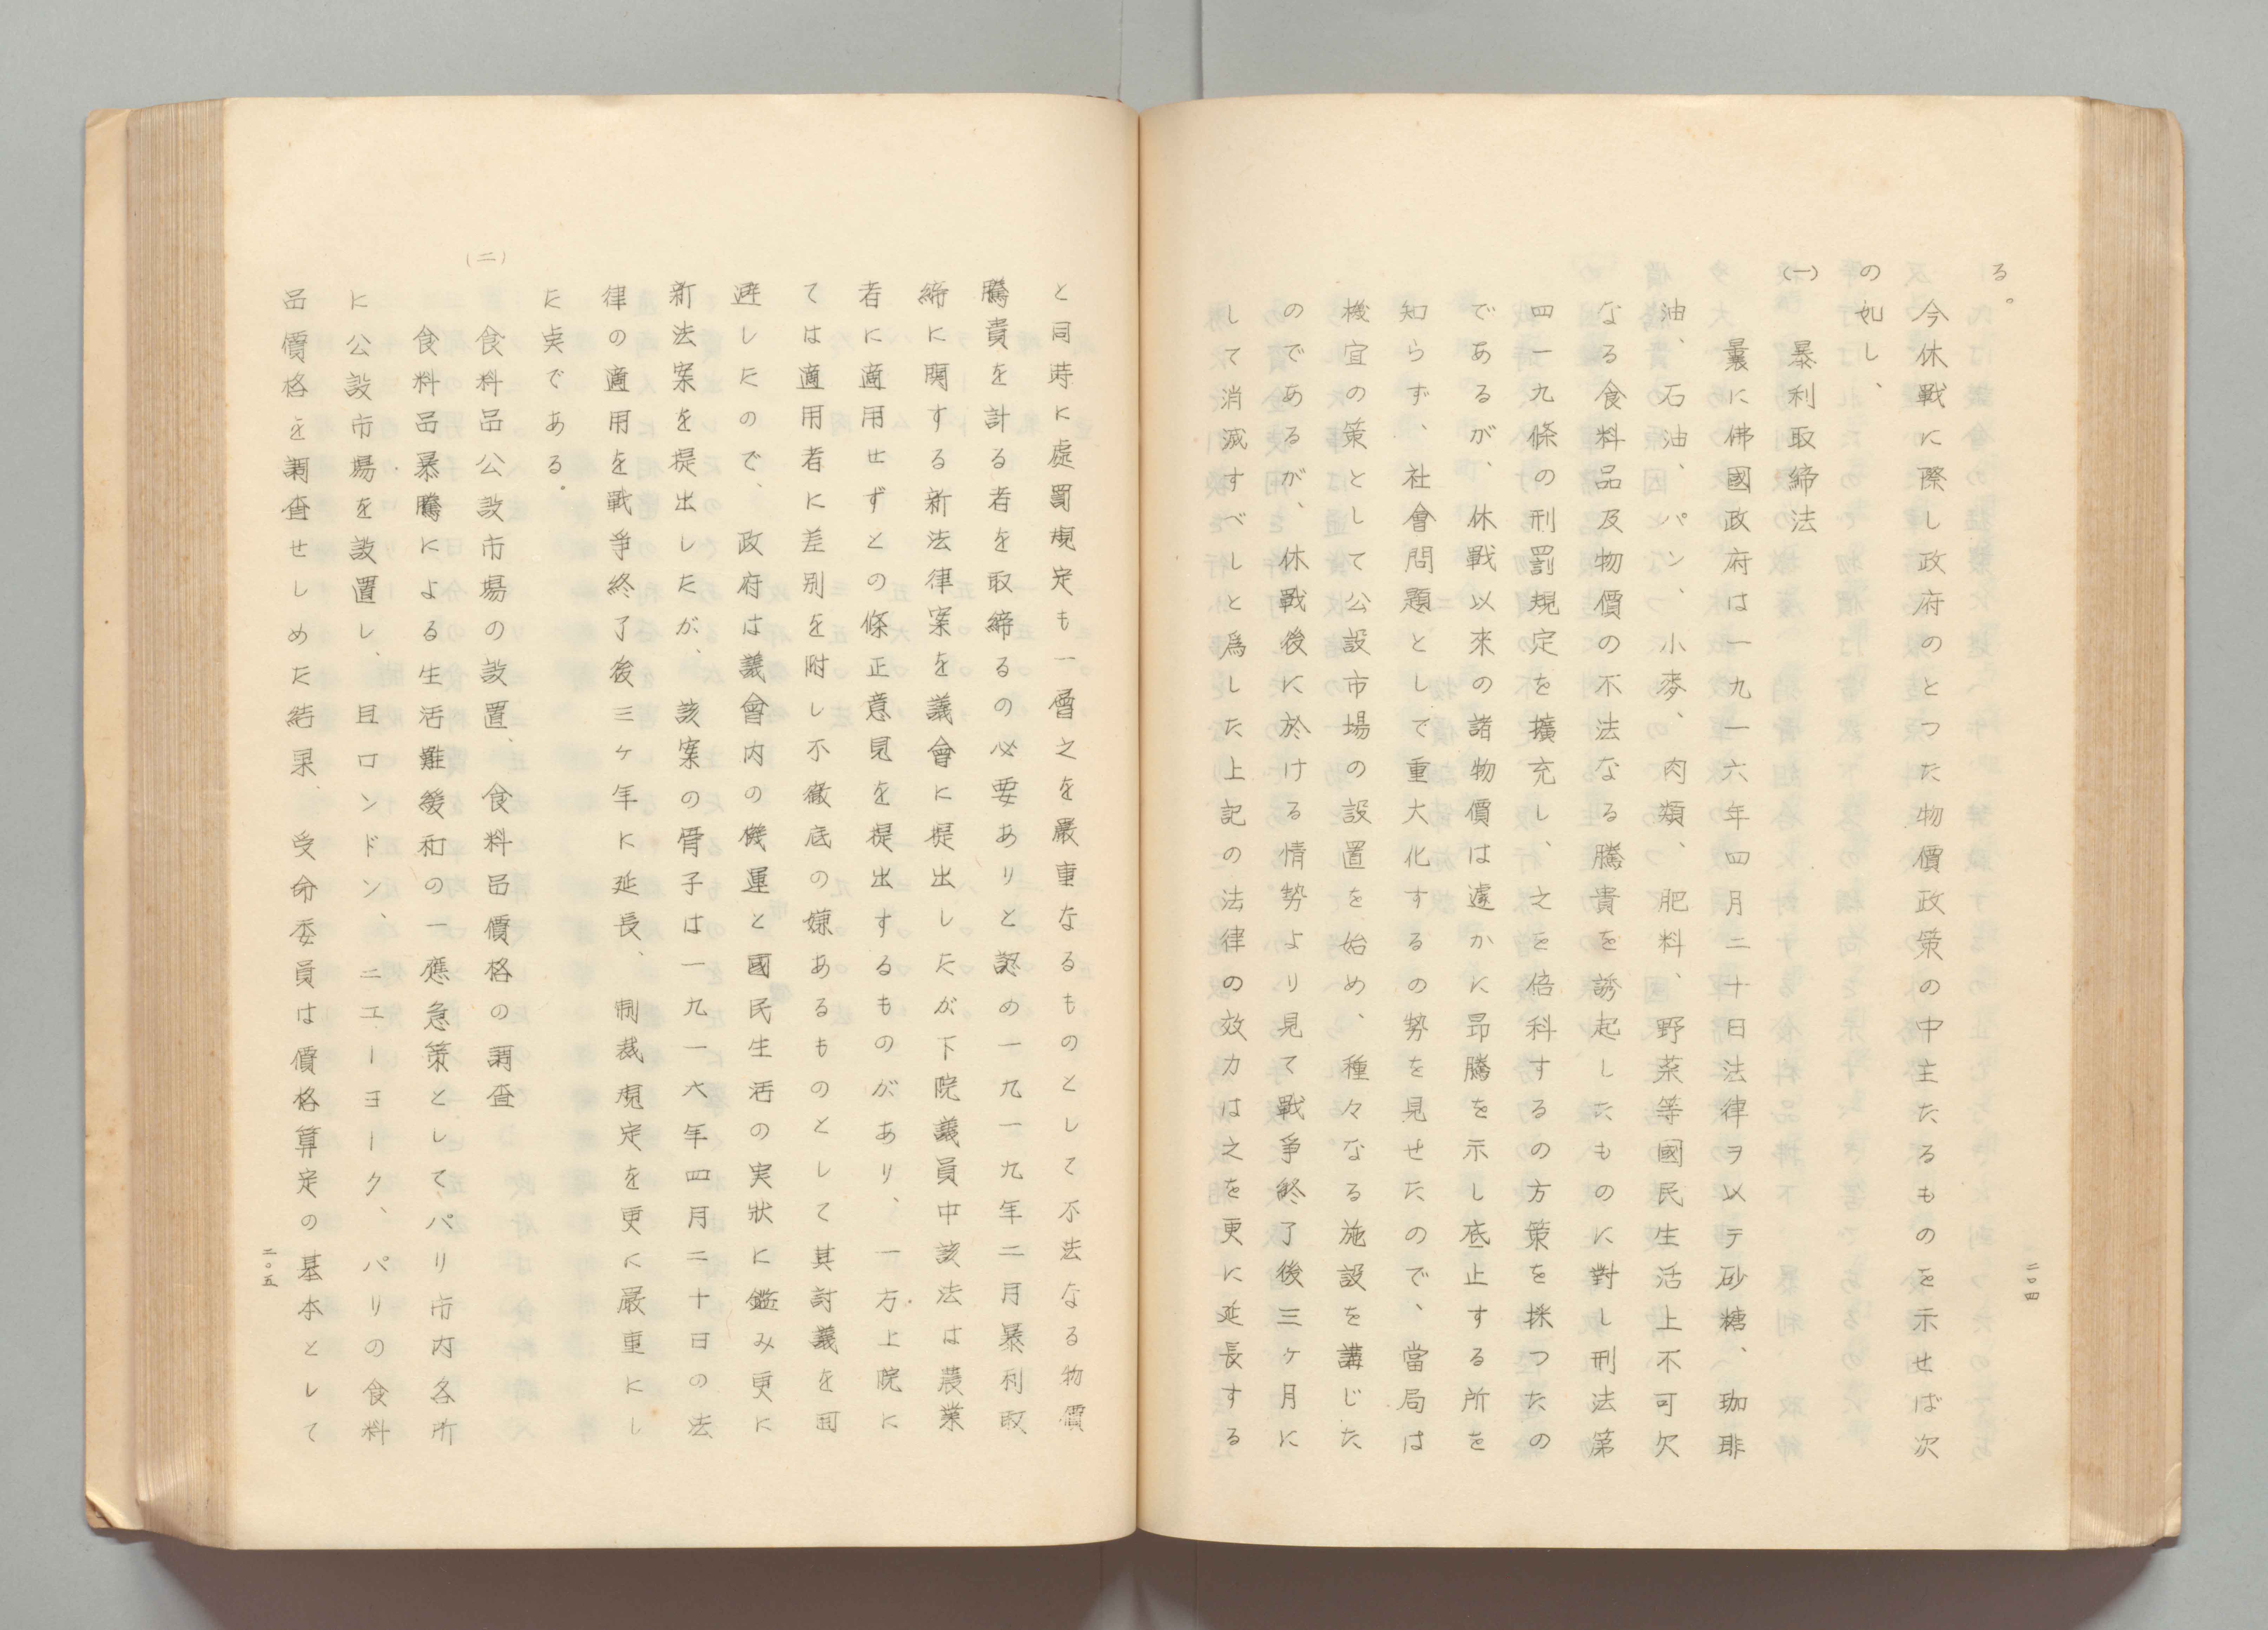 る。
今休戰に際し政府のとつた物價政策の中主たるものを示せば次
の如し、
(一) 暴利取締法
曩に佛國政府は一九一六年四月二十日法律ヲ以テ砂糖、珈琲
油、石油、パン、小麥、肉類、肥料、野菜等國民生活上不可欠
なる食料品及物價の不法なる騰貴を誘起したものに對し刑法第
四一九條の刑罰規定を擴充し、之を倍科するの方策を採つたの
であるが、休戰以來の諸物價は遽かに昂騰を示し底止する所を
知らず、社會問題として重大化するの勢を見せたので、當局は
機宜の策として公設市場の設置を始め、種々なる施設を講じた
のであるが、休戰後に於ける情勢より見て戰爭終了後三ヶ月に
して消滅すべしと爲した上記の法律の效力は之を更に延長する
二〇四
と同時に處罰規定も一層之を嚴重なるものとして不法なる物價
騰貴を計る者を取締るの必要ありと認め一九一九年二月暴利取
締に関する新法律案を議會に提出したが下院議員中該法は農業
者に適用せずとの條正意見を提出するものがあり、一方上院に
ては適用者に差別を附し不徹底の嫌あるものとして其討議を囬
避したので、政府は議會内の機運と國民生活の実狀に鑑み更に
新法案を提出したが、該案の骨子は一九一六年四月二十日の法
律の適用を戰爭終了後三ヶ年に延長、制裁規定を更に嚴重にし
た点である。
(二) 食料品公設市場の設置、食料品價格の調査
食料品暴騰による生活難緩和の一應急策としてパリ市内各所
に公設市場を設置し、且ロンドン、ニューヨーク、パリの食料
品價格を調査せしめた結果、受命委員は價格算定の基本として
二〇五